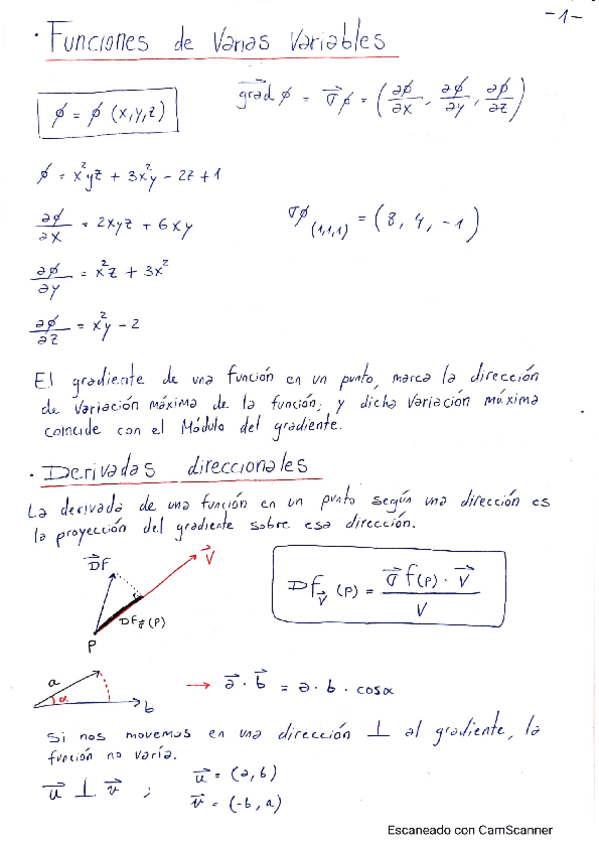 -1-
· Funciones de Varias Variables
φ = φ (x,y,z)
grad φ = ∇φ = (∂φ/∂x, ∂φ/∂y, ∂φ/∂z)
φ = x²yz + 3x²y - 2z + 1
∂φ/∂x = 2xyz + 6xy
∇φ(1,1,1) = (8, 4, -1)
∂φ/∂y = x²z + 3x²
∂φ/∂z = x²y - 2
El gradiente de una función en un punto, marca la dirección
de variación máxima de la función, y dicha variación máxima
coincide con el Módulo del gradiente.
· Derivadas direccionales
La derivada de una función en un punto según una dirección es
la proyección del gradiente sobre esa dirección.
Df
V
Df v (P)
P
Df v (P) = ∇f(P) · V / V
a
α
b
→ a · b = a · b · cosα
Si nos movemos en una dirección ⊥ al gradiente, la
función no varía.
u ⊥ v ;
u = (a, b)
v = (-b, a)
Escaneado con CamScanner